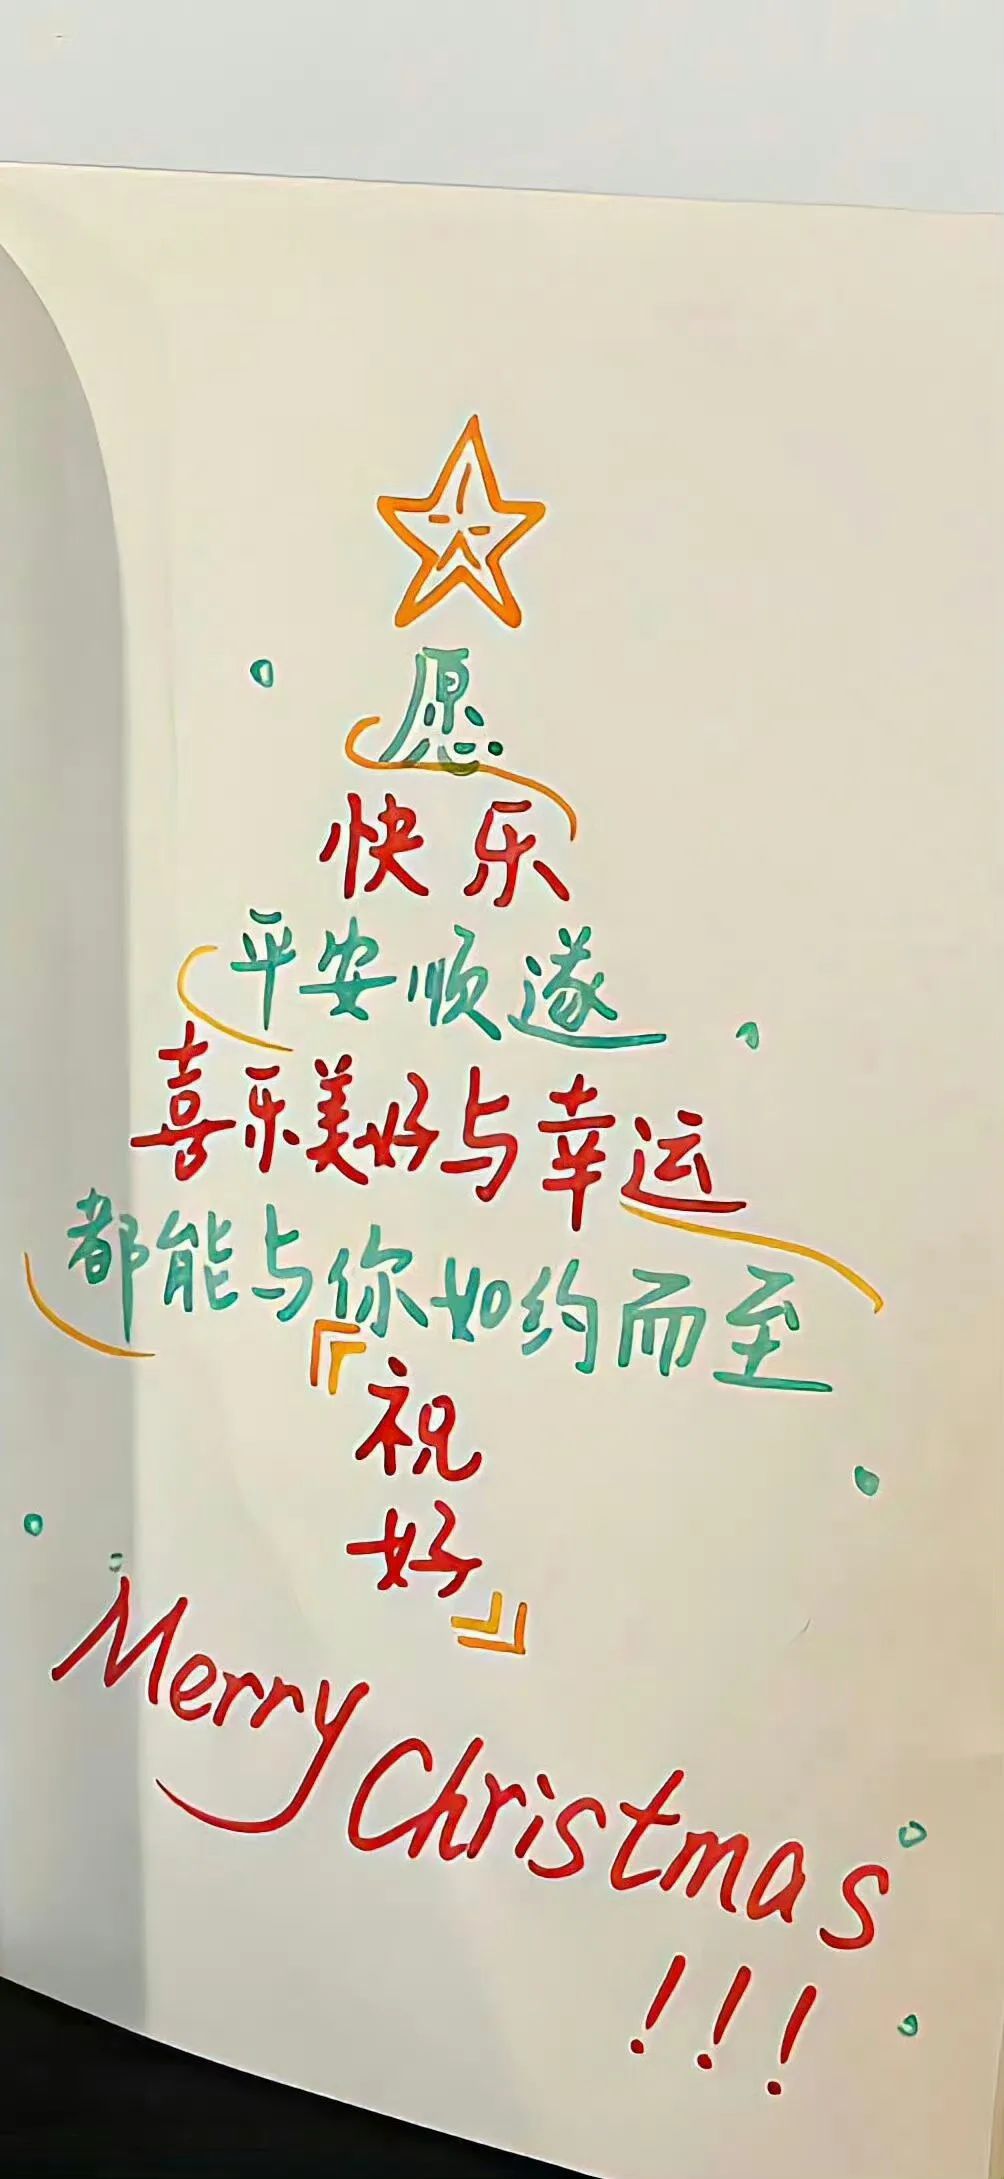 愿
快乐
平安顺遂
喜乐美好与幸运
都能与你如约而至
『祝
好』
Merry Christmas
!!!